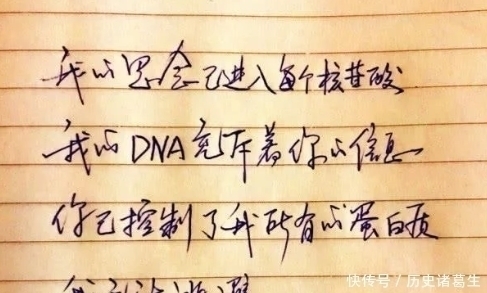 我的思念已进入每个核苷酸
我的DNA充斥着你的信息
你已控制了我所有的蛋白质
我
快传号／历史诸葛生